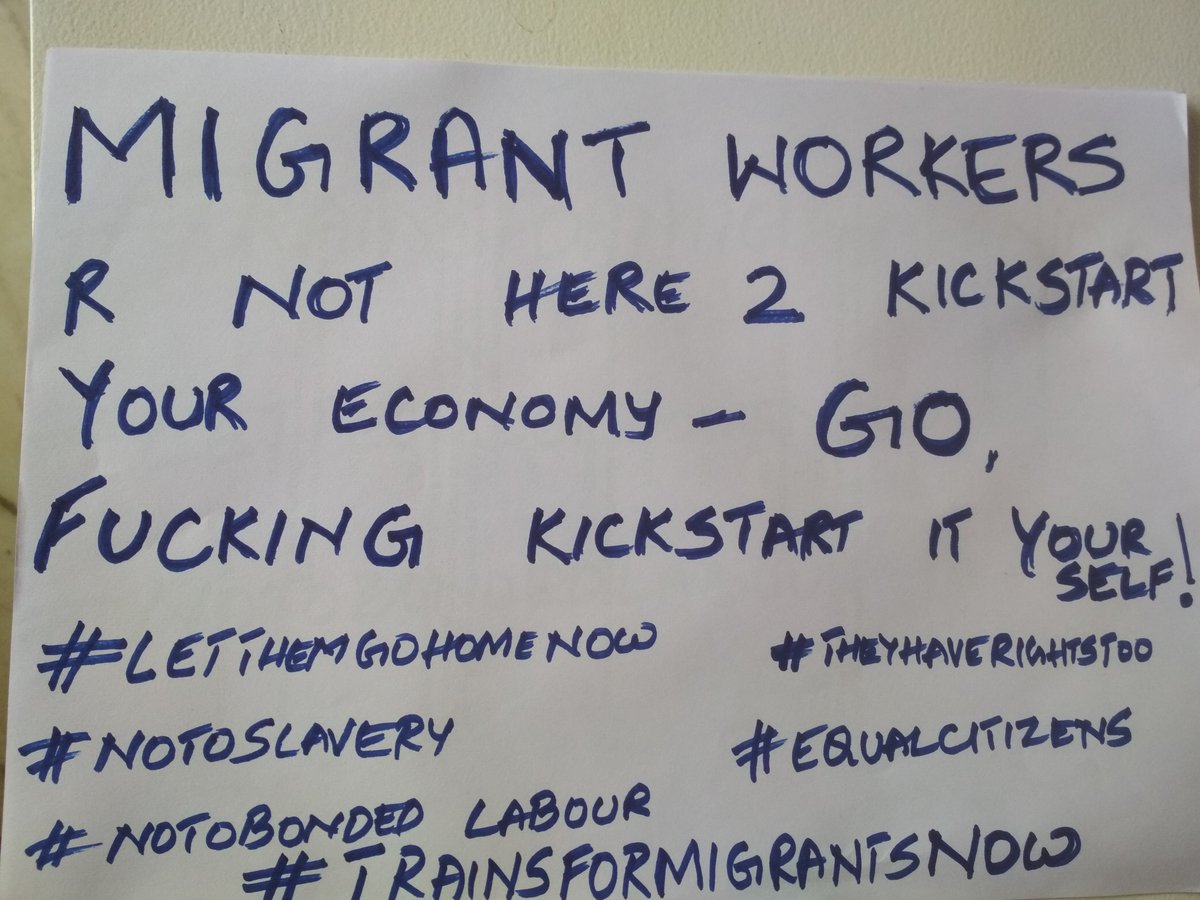 MIGRANT WORKERS
R NOT HERE 2 KICKSTART
YOUR ECONOMY - GO,
FUCKING KICKSTART IT YOUR
SELF!
#LETTHEMGOHOMENOW #THEYHAVERIGHTSTOO
#NOTOSLAVERY #EQUALCITIZENS
#NOTOBONDED LABOUR
#TRAINSFORMIGRANTSNOW